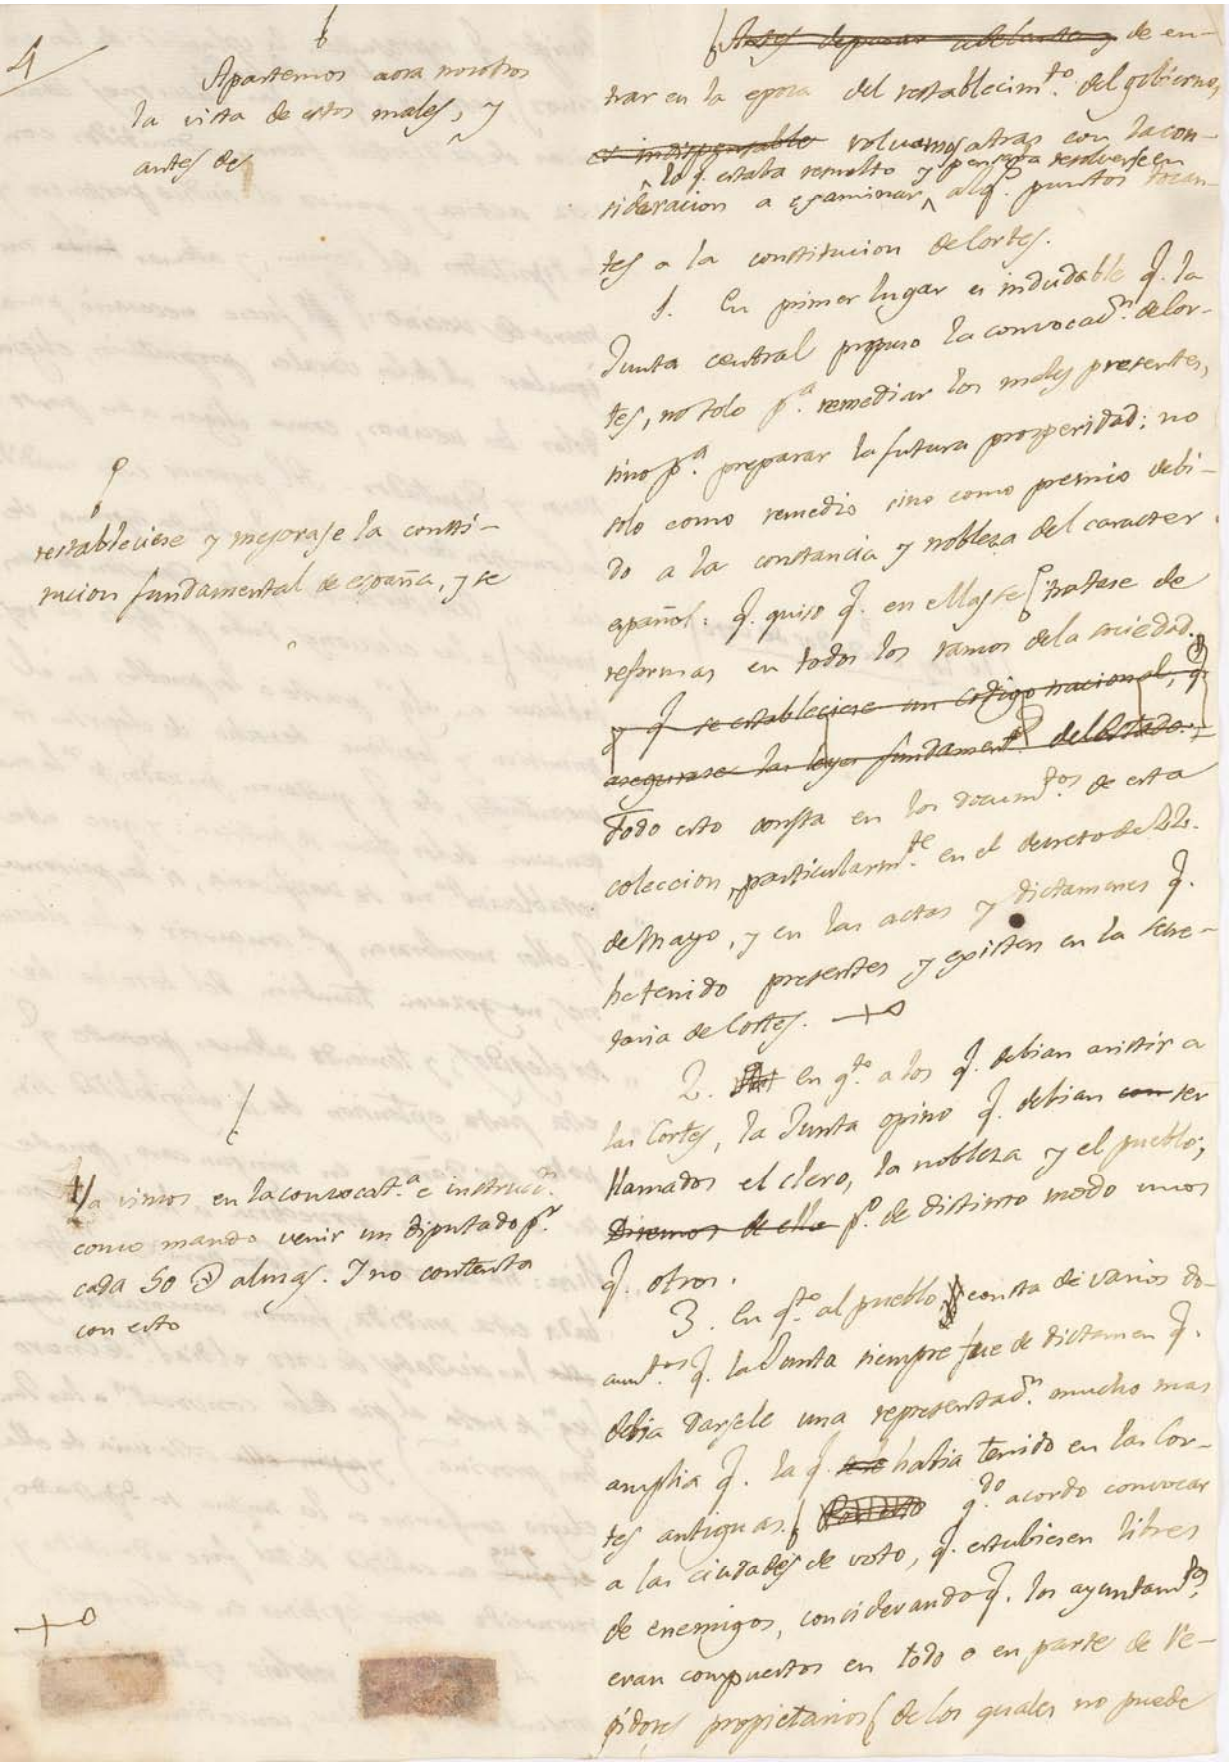 4
Apartemos aora nosotros
la vista de estos males, y
antes de
restableciese y mejorase la consti-
tucion fundamental de españa, y se
Ya vimos en la convocat.ª e instrucc.n
como mando venir un diputado p.r
cada 50 almas. Y no contenta
con esto
Antes de pasar adelante y de en-
trar en la epoca del restablecim.to del gobierno,
es indispensable volvamos atras con la con-
lo q. estaba resuelto y pensaba resolverse en
sideracion a examinar alg.s puntos tocan-
tes a la constitucion de Cortes.
1. En primer lugar es indudable q. la
Junta central propuso la convocac.n de Cor-
tes, no solo p.ª remediar los males presentes,
sino p.ª preparar la futura prosperidad; no
solo como remedio sino como premio debi-
do a la constancia y nobleza del caracter
español: q. quiso q. en ellas se tratase de
reformas en todos los ramos de la sociedad.
y q. se estableciese un codigo nacional, q.
asegurase las leyes fundament.s del Estado.
Todo esto consta en los docum.tos de esta
coleccion, particularm.te en el decreto de 22.
de Mayo, y en las actas y dictamenes q.
he tenido presentes y existen en la secre-
taria de Cortes.
2. En q.to a los q. debian asistir a
las Cortes, la Junta opino q. debian con ser
llamados el clero, la nobleza y el pueblo;
Diremos de ello p.º de distinto modo unos
q. otros.
3. En q.to al pueblo, consta de varios do-
cum.tos q. la Junta siempre fue de dictamen q.
debia darsele una representac.n mucho mas
amplia q. la q. habia tenido en las Cor-
tes antiguas. q.do acordo convocar
a las ciudades de voto, q. estubiesen libres
de enemigos, considerando q. los ayuntam.tos
eran compuestos en todo o en parte de Re-
gidores propietarios de los quales no puede